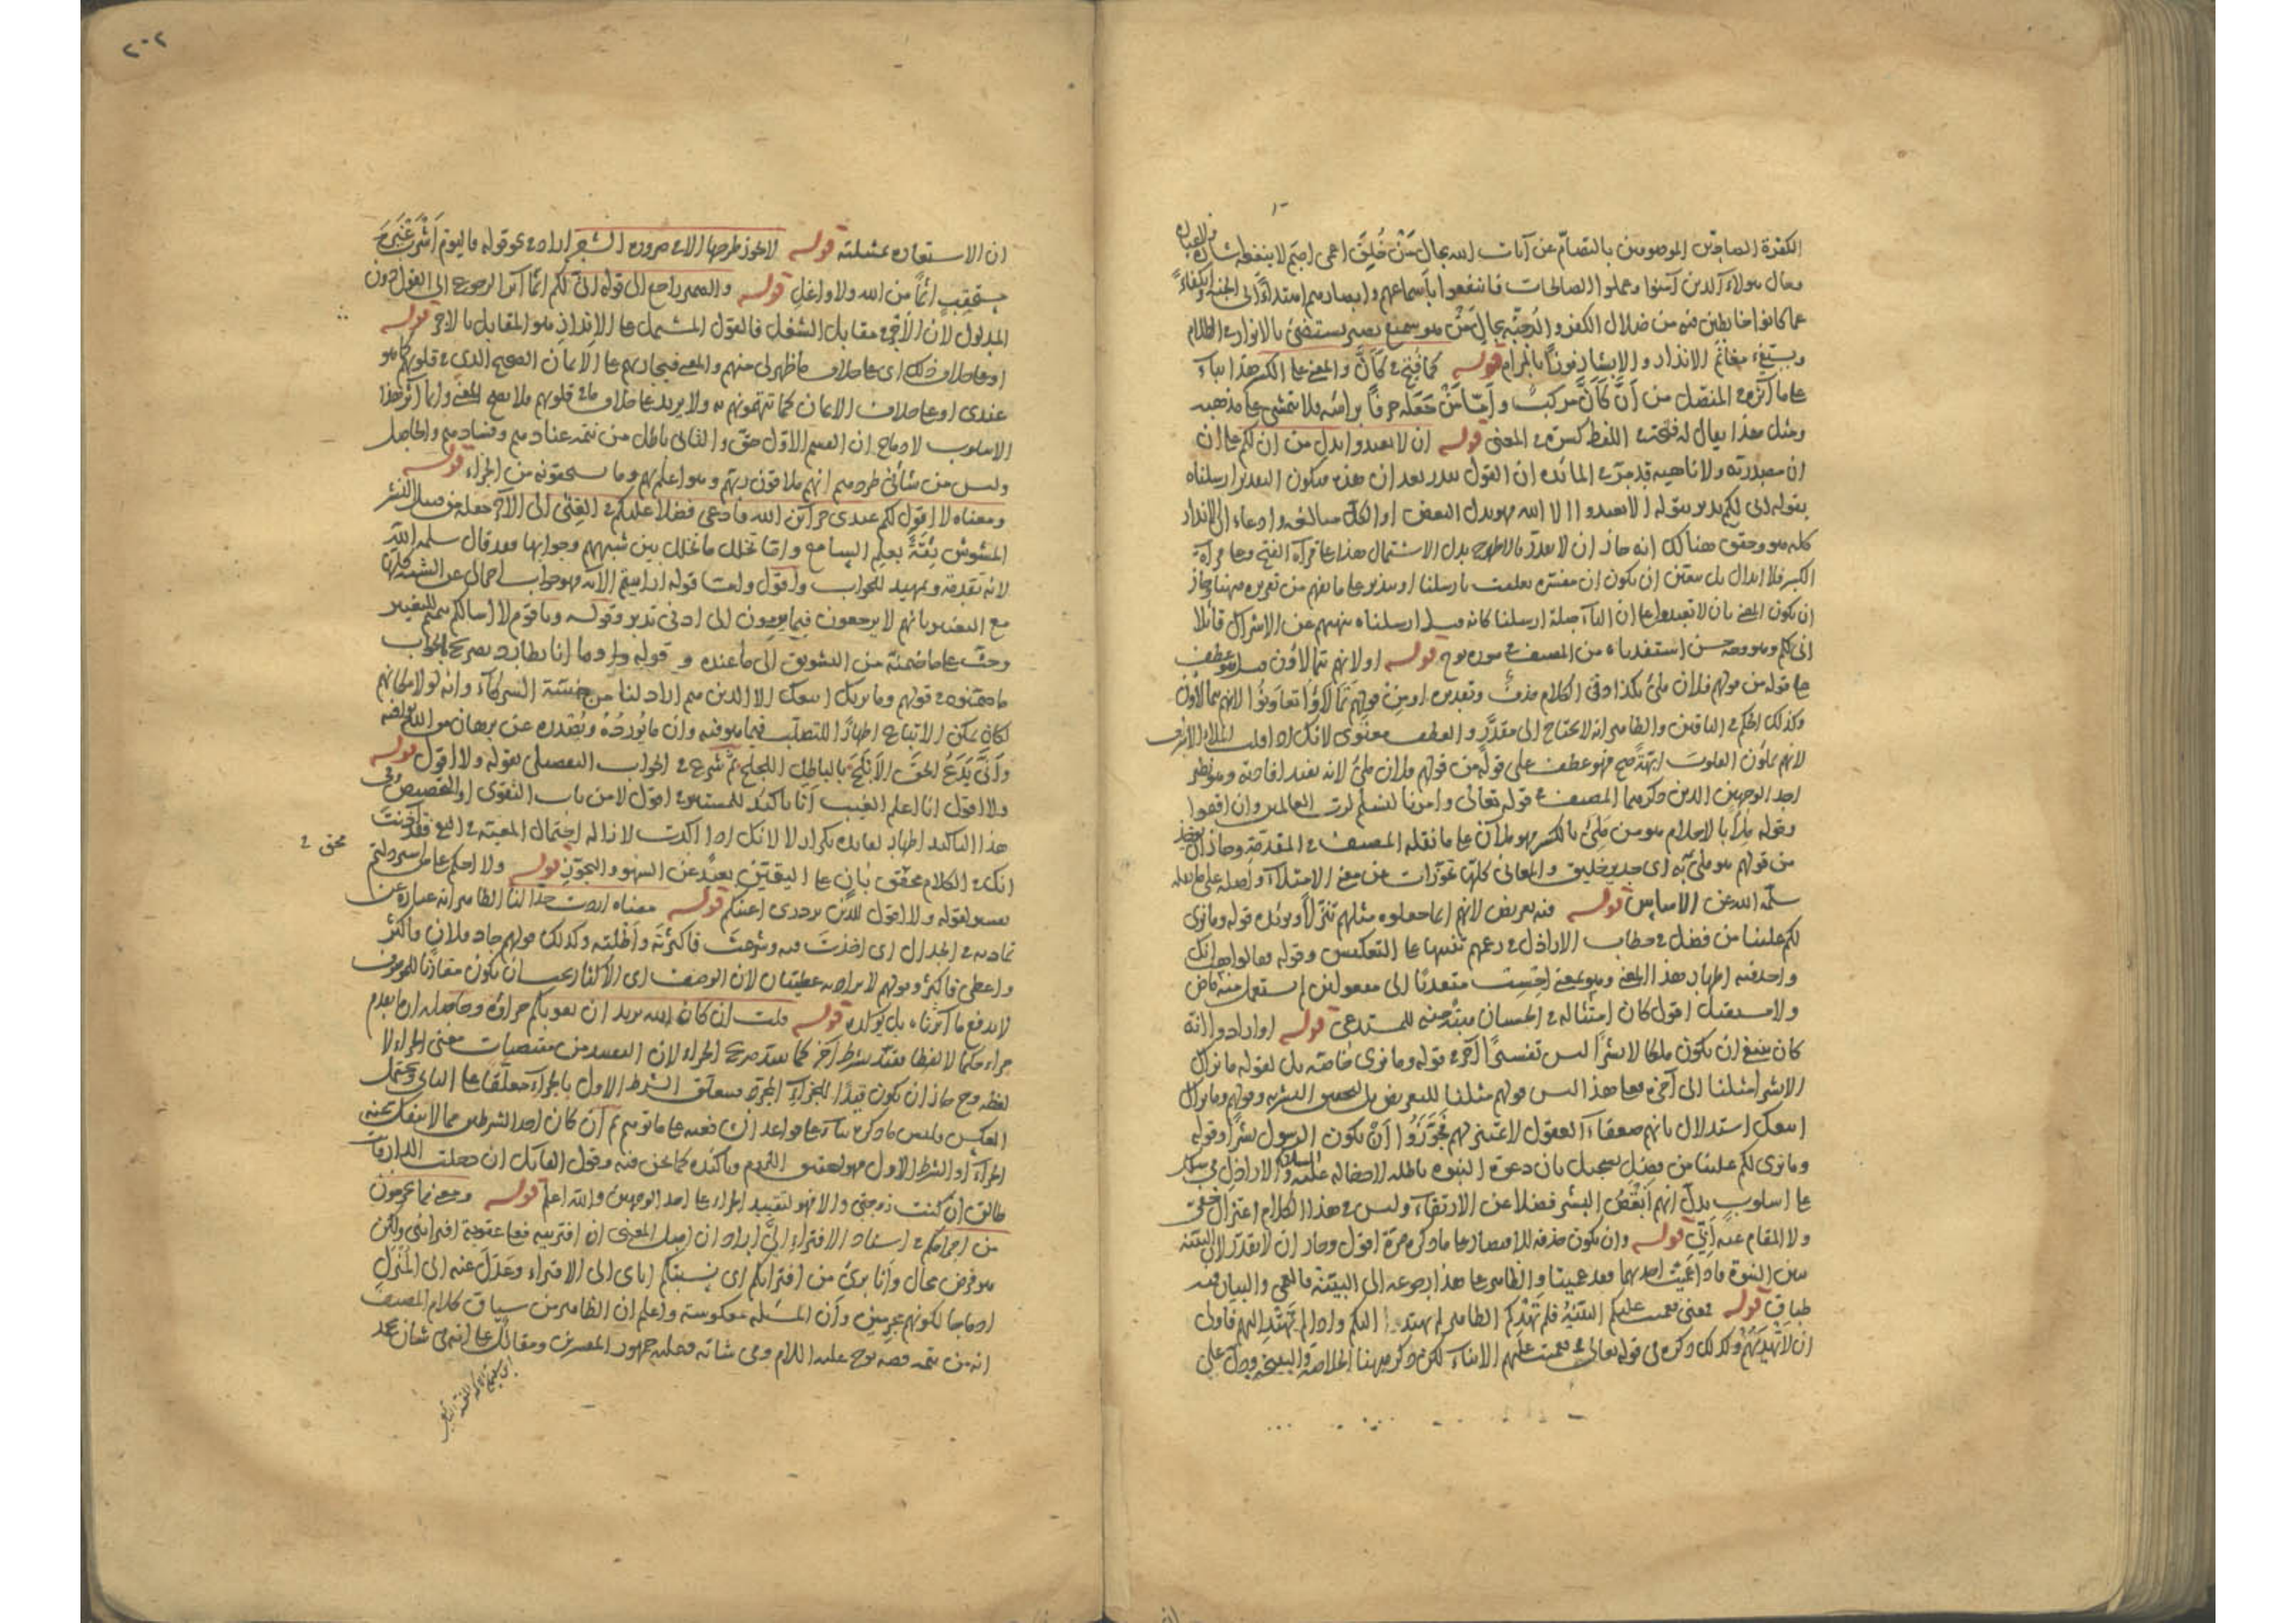 الكفرة الصادين الموصوفين بالتصام عن آيات الله بحال من خلق اعمى اصم لا ينفعه
وحال هؤلاء الذين آمنوا وعملوا الصالحات فانتفعوا بأسماعهم وابصارهم اهتداء الى الجنة
عما كانوا خابطين فيه من ضلال الكفر والدجنة بحال من هو سميع بصير يستضئ بالانوار في الظلام
ويستفئ مغانم الانذار والابشار فوزا بالمرام قوله كما فتح في كأن والمعنى على الكسر هذا بناء
على ما آثره في المفصل من أن كأن مركب وأما من جعله حرفا برأسه فلا يتمشى على مذهبه
ومثل هذا يقال له فتحة في اللفظ كسرة في المعنى قوله ان لا تعبدوا بدل من ان لكم على ان
ان مصدرية ولا ناهية قد مر في المائدة ان القول يقدر بعد ان هذه فيكون التقدير ارسلناه
بقوله انى لكم نذير بقوله الا تعبدوا الا الله فهو بدل البعض او الكل مبالغة وادعاء ان الانذار
كله هو وحقق هنالك انه جاز ان لا يقدر فالاظهر بدل الاشتمال هذا على قراءة الفتح وعلى قراءة
الكسر فلا ابدال بل يتعين ان يكون ان مفسرة تعلقت بارسلنا او بنذير على ما يفهم من تقريره ههنا وجاز
ان يكون المعنى بان لا تعبدوا على ان الباء صلة ارسلنا كانه قيل ارسلناه بنهيهم عن الاشراك قائلا
انى لكم وهو وجه حسن استفدناه من المصنف في سورة نوح قوله او لانهم يتمالأون هو عطف
على قوله من قولهم فلان ملئ بكذا وفى الكلام حذف وتقديره او من قولهم تمالأوا تعاونوا لانهم يتمالأون
وكذلك الحكم في الباقين والظاهر انه لا يحتاج الى مقدر والعطف معنوى لانك اذا قلت الملأ الاشراف
لانهم يملأون القلوب ابهة صح فهو عطف على قوله من قولهم فلان ملئ لانه يفيد افادته وهو نظير
احد الوجهين الذين ذكرهما المصنف في قوله تعالى وامرنا لنسلم لرب العالمين وان اقيموا
وقوله ملأ بالاحلام هو من ملئ بالكسر فهو ملآن على ما نقله المصنف في المقدمة وجاز ان يؤخذ
من قولهم هو ملئ به اى جدير خليق والمعانى كلها تجوزات من معنى الامتلاء واصله على ما نقله
سلمه الله عن الاساس قوله فيه تعريض لانهم انما جعلوه مثلهم تنزلا ويؤيده قوله وما نرى
لكم علينا من فضل في خطاب الاراذل في زعمهم تنبيها على التعكيس وقوله فقالوا هب انك
واحد فيه اظهار هذا المعنى وهب بمعنى احسب متعديا الى مفعولين لم يستعمل منه ماض
ولا مستقبل اقول كان امتثاله في الحسبان مبتدر منه للمستدعى قوله او ارادوا انه
كان ينبغى ان يكون ملكا لا بشرا ليس تفسيرا آخر في قوله وما نرى خاصة بل لقوله ما نراك
الا بشرا مثلنا الى آخره فعلى هذا ليس قولهم مثلنا للتعريض بل لتحقيق البشرية وقولهم وما نراك
اتبعك استدلال بانهم ضعفاء العقول لا تمييز لهم فجوزوا أن يكون الرسول بشرا وقوله
وما نرى لكم علينا من فضل تسجيل بان دعوة النبوة باطلة لادخاله عليه السلام والاراذل في سلك
على اسلوب يدل انهم انقص البشر فضلا عن الارتقاء وليس في هذا الكلام اعتزال خفى
ولا المقام عنه أبي قوله وان يكون حذفه للاقتصار على ما ذكره مرة اقول وجاز ان لا يقدر لان البينة
بيان النبوة فاذا عميت احديهما فقد عميتا والظاهر على هذا رجوعه الى البينة فالعمى والبيان فيه
طباق قوله فمعنى فعميت عليكم البينة فلم تهدكم الظاهر لم يهتد اليكم واذا لم تهتد اليهم فاولى
ان لا تهديهم وكذلك ذكره في قوله تعالى فعميت عليهم الانباء لكن ذكر ههنا الخلاصة والنتيجة ودل على
٢٠٢
ان الاستعارة تمثيلية قوله لا يجوز طرحها الا في ضرورة الشعر اراد في نحو قوله فاليوم اشرب غير
مستحقب اثما من الله ولا واغل قوله والضمير راجع الى قوله انى لكم انما آثر الرجوع الى القول دون
المدلول لان الاجر في مقابل الشغل فالقول المشتمل على الانذار هو المقابل بالاجر قوله
او على خلاف ذلك اى على خلاف ما ظهر لى منهم والمعنى فيجازيهم على الايمان الصحيح الذى في قلوبهم كما هو
عندى او على خلاف الايمان كما تتهمونهم به ولا يريد على خلاف ما في قلوبهم فلا يصح المعنى وانما آثر هذا
الاسلوب لادماج ان القسم الاول حق والثانى باطل من تتمة عنادهم وفسادهم والحاصل
وليس من شأنى طردهم انهم ملاقون ربهم وهو اعلم بهم وما يستحقونه من الجزاء قوله
ومعناه لا اقول لكم عندى خزائن الله فادعى فضلا عليكم في الغنى الى الآخر جعله من قبيل النشر
المشوش ثقة بعلم السامع وانما تخلل ما تخلل بين شبههم وجوابها فقد قال سلمه الله
لانه تقدمة وتمهيد للجواب واقول ولما قوله ارأيتم الآية فهو جواب اجمالى عن الشبه كلها
مع التعيير بانهم لا يرجعون فيما يرمون الى ادنى تدبر وقوله ويا قوم لا اسالكم تتميم للتعيير
وحث على ما ضمنه من التشويق الى ما عنده و قوله وما انا بطارد تصريح بجواب
ما ضمنوه في قولهم وما نريك اتبعك الا الذين هم اراذلنا من خسة الشركاء وانه لولا مكانهم
لكان يمكن الاتباع اظهارا للتصلب فيما هو فيه وان ما يورده ويصدره عن برهان من الله يوافيه
وأنى يدع الحق الابلج بالباطل اللجلج ثم شرع في الجواب التفصيلى بقوله ولا اقول قوله
ولا اقول انا اعلم الغيب أنا تأكيد للمستتر في اقول لا من باب التقوى او التخصيص وفى
هذا التأكيد اظهار لفائدة تكرار لا لانك اذا اكدت لازالة احتمال المعية في المنع فقد آذنت
محق ٢
انك في الكلام محقق بان على اليقين بعيد عن السهو والتجوز قوله ولا احكم على من استرذلتم
تفسير لقوله ولا اقول للذين تزدرى اعينكم قوله معناه اردت جدالنا الظاهر انه عبارة عن
تماديه في الجدال اى اخذت فيه وشرعت فاكثرته واطلته وكذلك قولهم جاد فلان فاكثر
واعطى فاكثر وقولهم لا يراد به عطيتان لان الوصف اى الاكثار يجب ان يكون مقارنا للموصوف
لا يدفع ما آثرناه بل يؤكده قوله قلت ان كان الله يريد ان يغويكم جزاؤه وحاصله ان ما تقدم
جزاء حكما لا لفظا يقيد بشرط آخر كما يقيد صريح الجزاء لان التقييد من مقتضيات معنى الجزاء لا
لفظه وح جاز ان يكون قيدا للجزاء المجرد فيتعلق الشرط الاول بالجزاء معلقا على الثانى ويحتمل
العكس وليس ما ذكره بناء على قواعد الشافعية على ما توهم ثم ان كان احد الشرطين مما لا ينفك عنه
الجزاء او الشرط الاول فهو لتحقيق اللزوم وتأكيده كما نحن فيه وقول القائل ان دخلت الدار فانت
طالق ان كنت زوجتى والا فهو لتقييد الجزاء على احد الوجهين والله اعلم قوله ومعنى مما تجرمون
من اجرامكم في اسناد الافتراء الىّ اراد ان اصل المعنى ان افتريته فعلى عقوبة افترائى ولكن
هو فرض محال وأنا برئ من افترائكم اى نسبتكم اياى الى الافتراء وعدل عنه الى المنزل
ادماجا لكونهم مجرمين وأن المسئلة معكوسة واعلم ان الظاهر من سياق كلام المصنف
انه من تتمة قصة نوح عليه السلام وفى شانه وعليه جمهور المفسرين ومقاتل على انها في شان محمد